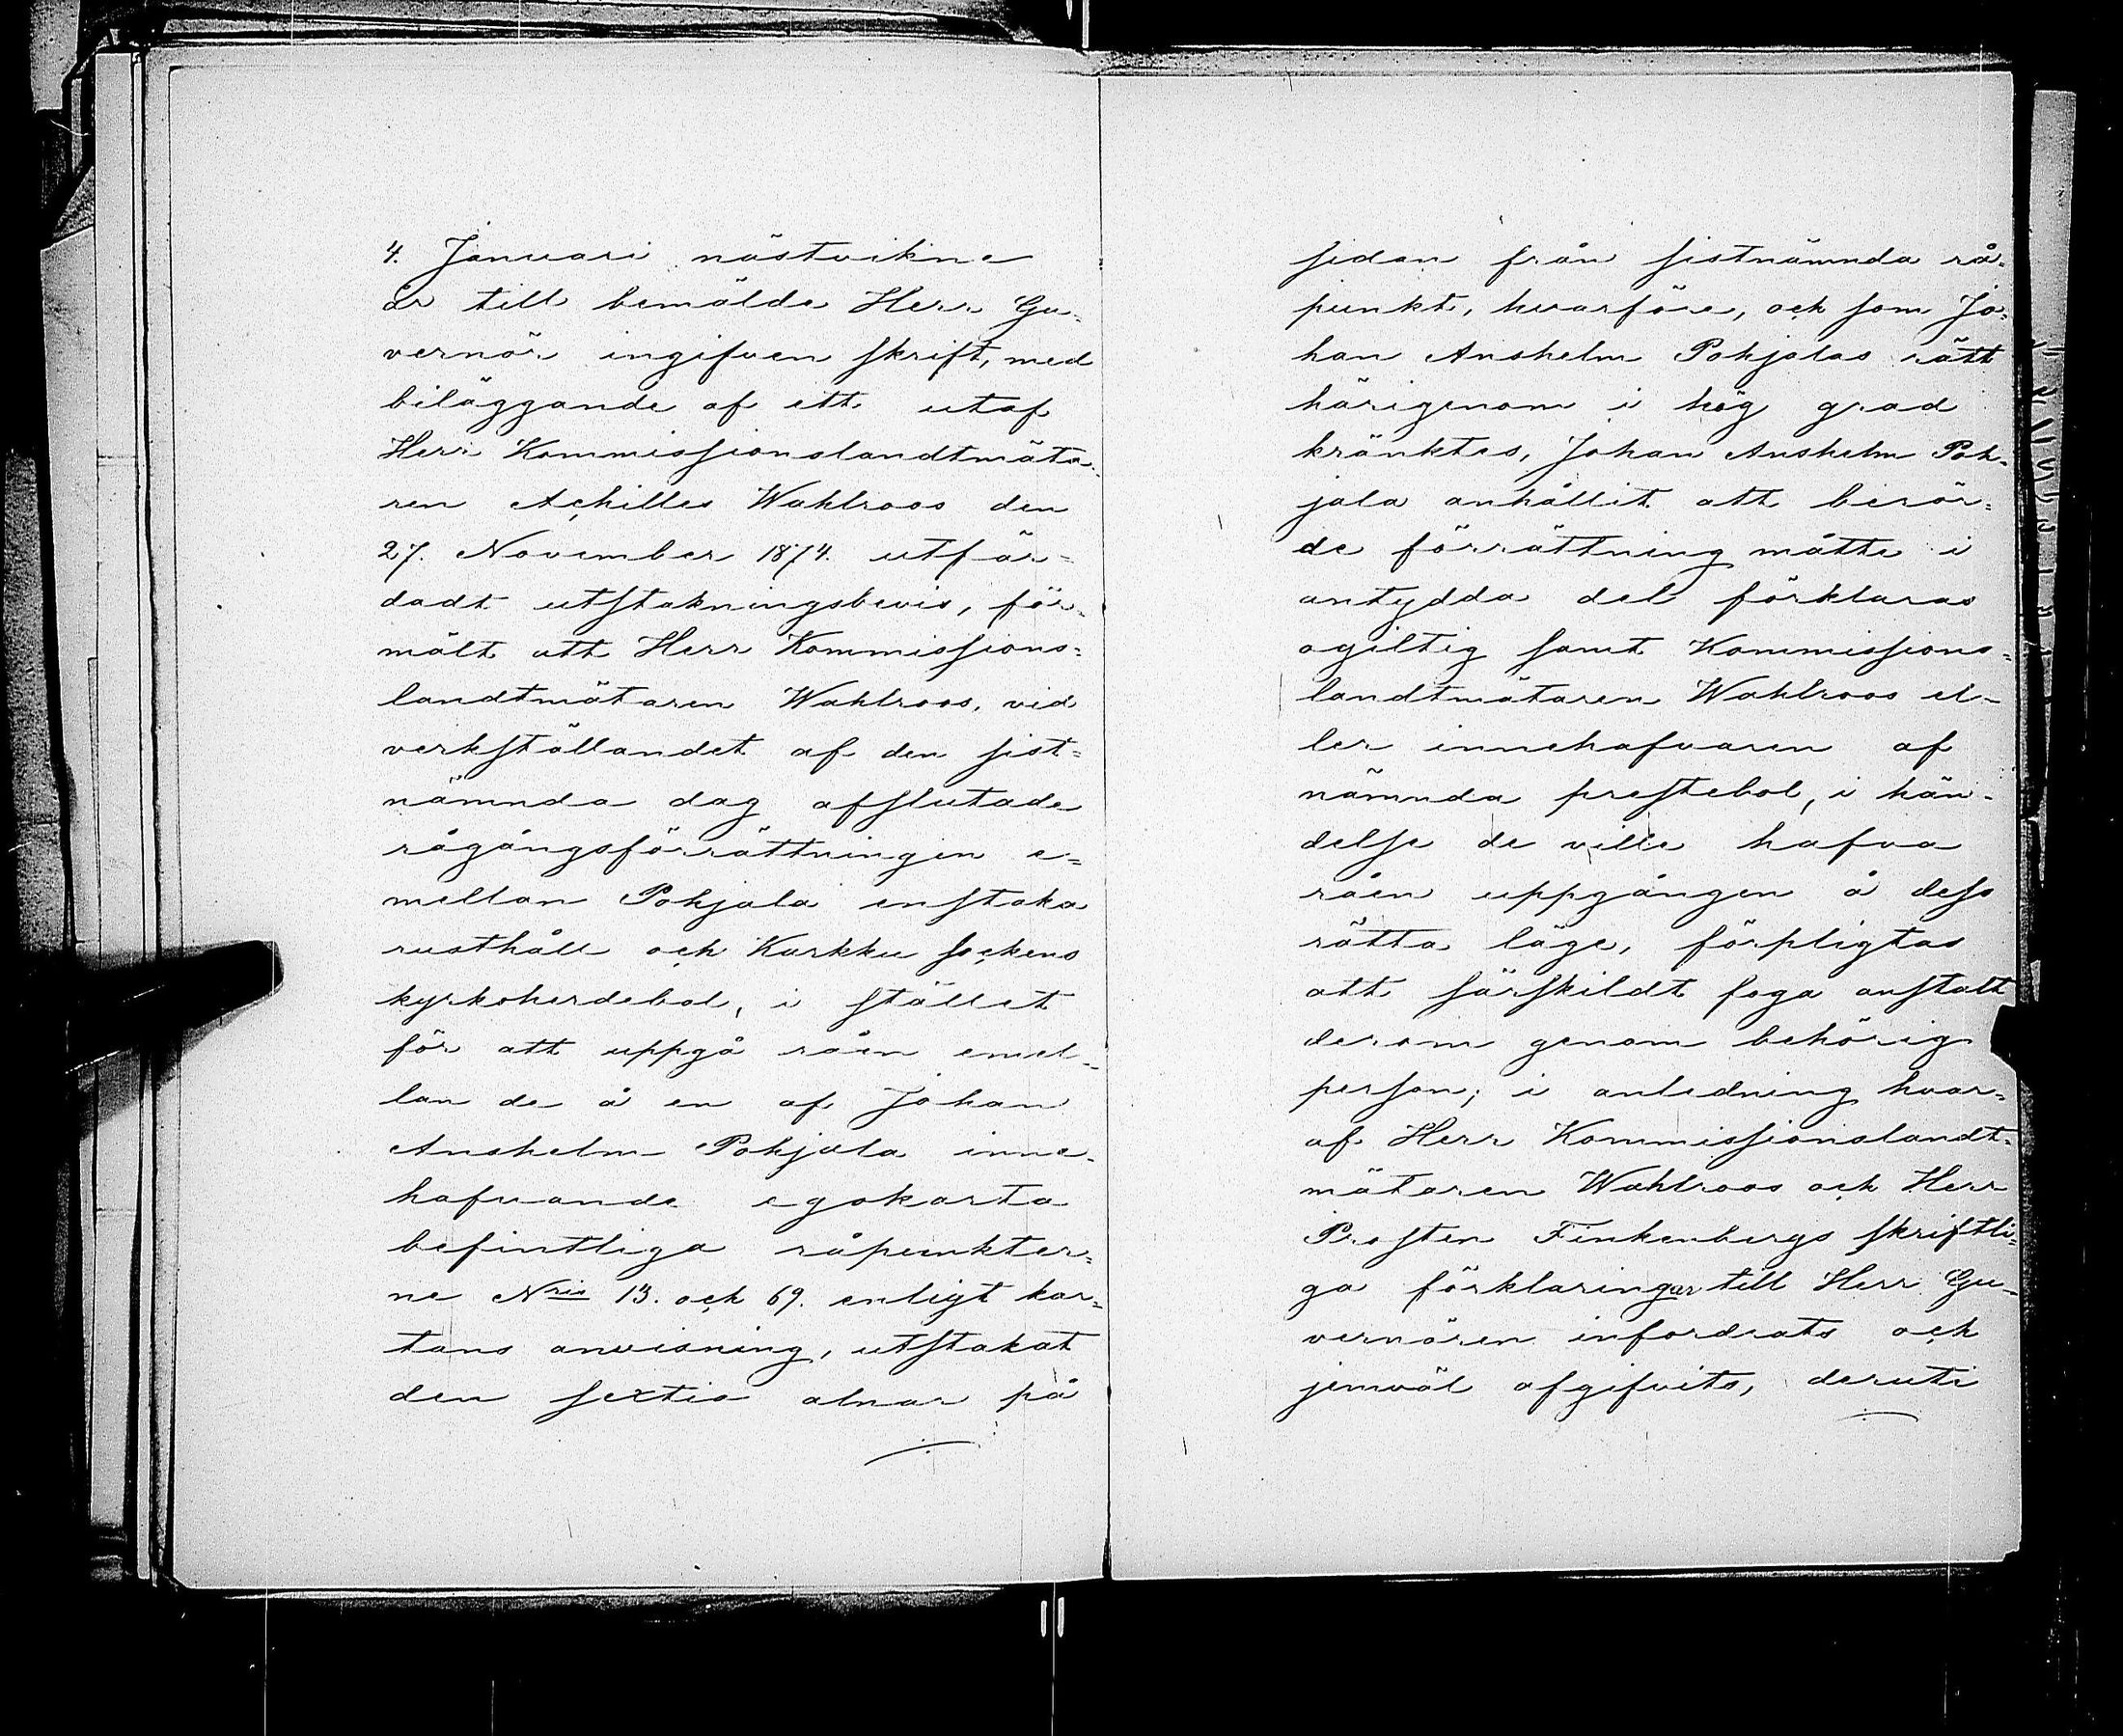 4. Januari nästvikne
år till bemälde Herr Gu-
vernör ingifven skrift, med
biläggande af ett utaf
Herr Kommissionslandtmäta-
ren Achilles Wahlroos den
27. November 1874. utfär-
dadt utstakningsbevis, för-
mält att Herr Kommissions-
landtmätaren Wahlroos, vid
verkställandet af den sist-
nämnda dag afslutade
rågångsförrättningen e-
mellan Pohjala enstaka
rusthåll och Karkku sockens
kyrkoherdebol, i stället
för att uppgå råen emel-
lan de å en af Johan
Anshelm Pohjala inne-
hafvande egokarta
befintliga råpunkter-
ne Nris 13. och 69. enligt kar-
tans anvisning, utstakat
den sextio alnar på
sidan från sistnämnda rå-
punkt, hvarföre, och som Jo-
han Anshelm Pohjalas rätt
härigenom i hög grad
kränktes, Johan Anshelm Poh-
jala anhållit att berör-
de förrättning måtte i
antydda del förklaras
ogiltig samt Kommissions-
landtmätaren Wahlroos el-
ler innehafvaren af
nämnda prestebol, i hän-
delse de ville hafva
råen uppgången å dess
rätta läge, förpligtas
att särskildt foga anstalt
derom genom behörig
person; i anledning hvar-
af Herr Kommissionslandt-
mätaren Wahlroos och Herr
Prosten Finkenbergs skriftli-
ga förklaringar till Herr Gu-
vernören infordrats och
jemväl afgifvits, deruti